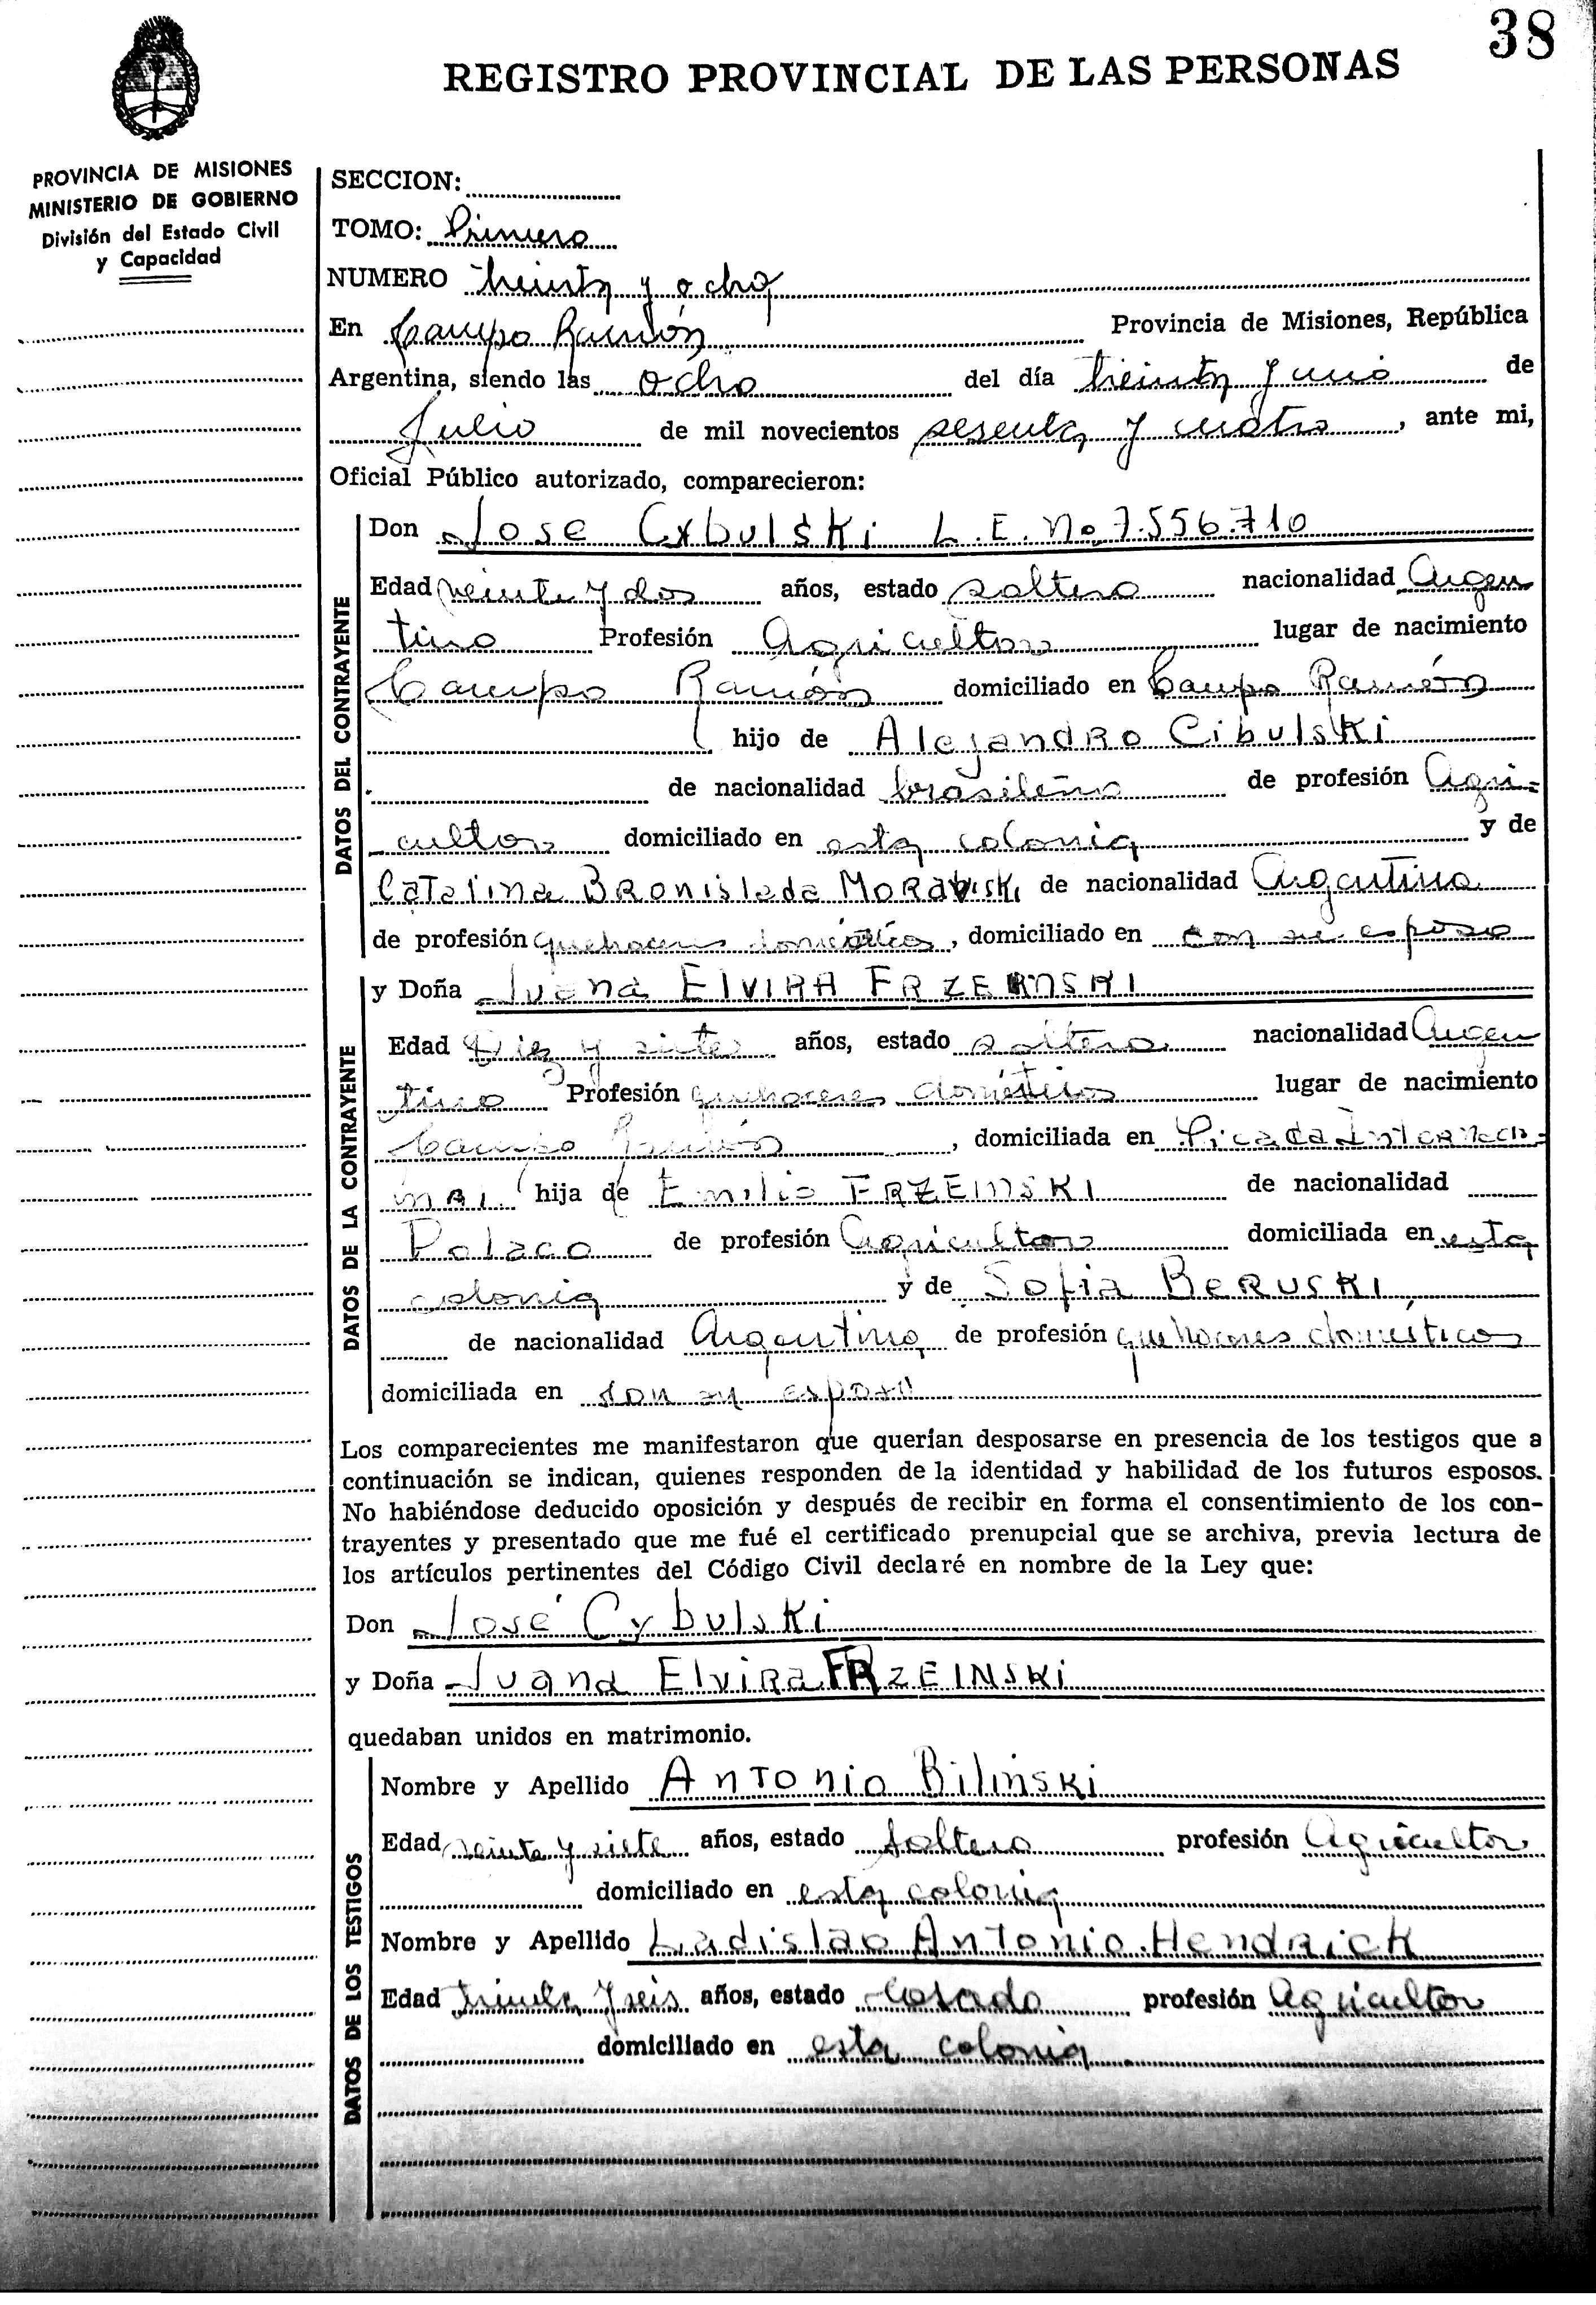 38
REGISTRO PROVINCIAL DE LAS PERSONAS
PROVINCIA DE MISIONES
MINISTERIO DE GOBIERNO
División del Estado Civil
y Capacidad
SECCION:
TOMO: Primero
NUMERO treinta y ocho
En Campo Ramón Provincia de Misiones, República
Argentina, siendo las ocho del día treinta y uno de
Julio de mil novecientos sesenta y cuatro, ante mi,
Oficial Público autorizado, comparecieron:
DATOS DEL CONTRAYENTE
Don Jose Cybulski L.E. No 7.556.710
Edad veinte y dos años, estado soltero nacionalidad Argen
tino Profesión Agricultor lugar de nacimiento
Campo Ramón domiciliado en Campo Ramón
hijo de Alejandro Cibulski
de nacionalidad brasileño de profesión Agri-
cultor domiciliado en esta colonia y de
Catalina Bronislada Morawski de nacionalidad Argentina
de profesión quehaceres domésticos, domiciliado en con su esposo
DATOS DE LA CONTRAYENTE
y Doña Juana ELVIRA FRZEINSKI
Edad Diez y siete años, estado soltera nacionalidad Argen
tino Profesión quehaceres domésticos lugar de nacimiento
Campo Ramón, domiciliada en Picada Internacio-
nal hija de Emilio FRZEINSKI de nacionalidad
Polaco de profesión Agricultor domiciliada en esta
colonia y de Sofia BERUSKI
de nacionalidad Argentina de profesión quehaceres domésticos
domiciliada en con su esposo
Los comparecientes me manifestaron que querían desposarse en presencia de los testigos que a
continuación se indican, quienes responden de la identidad y habilidad de los futuros esposos.
No habiéndose deducido oposición y después de recibir en forma el consentimiento de los con-
trayentes y presentado que me fué el certificado prenupcial que se archiva, previa lectura de
los artículos pertinentes del Código Civil declaré en nombre de la Ley que:
Don José Cybulski
y Doña Juana Elvira FRZEINSKI
quedaban unidos en matrimonio.
DATOS DE LOS TESTIGOS
Nombre y Apellido Antonio Bilinski
Edad veinte y siete años, estado soltero profesión Agricultor
domiciliado en esta colonia
Nombre y Apellido Ladislao Antonio Hendrick
Edad treinta y seis años, estado casado profesión Agricultor
domiciliado en esta colonia